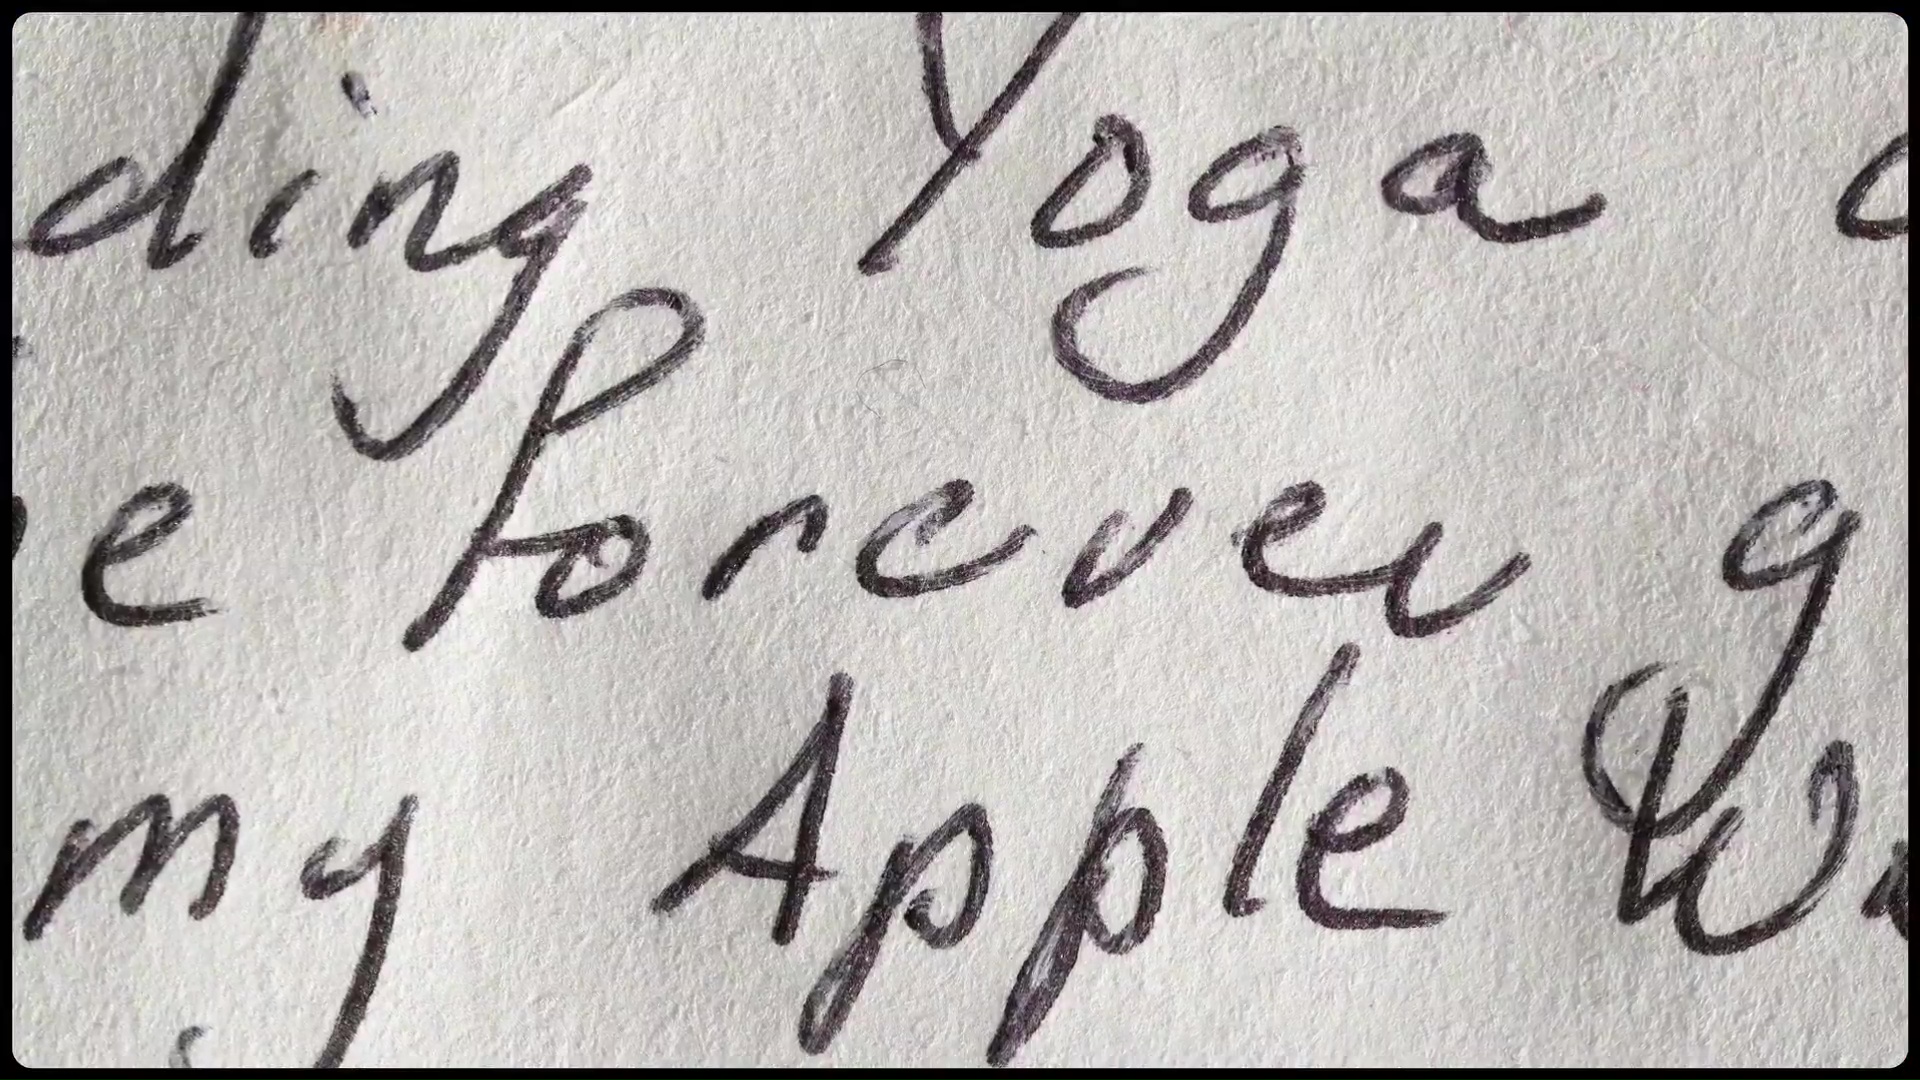 ding Yoga
e forever g
my Apple W